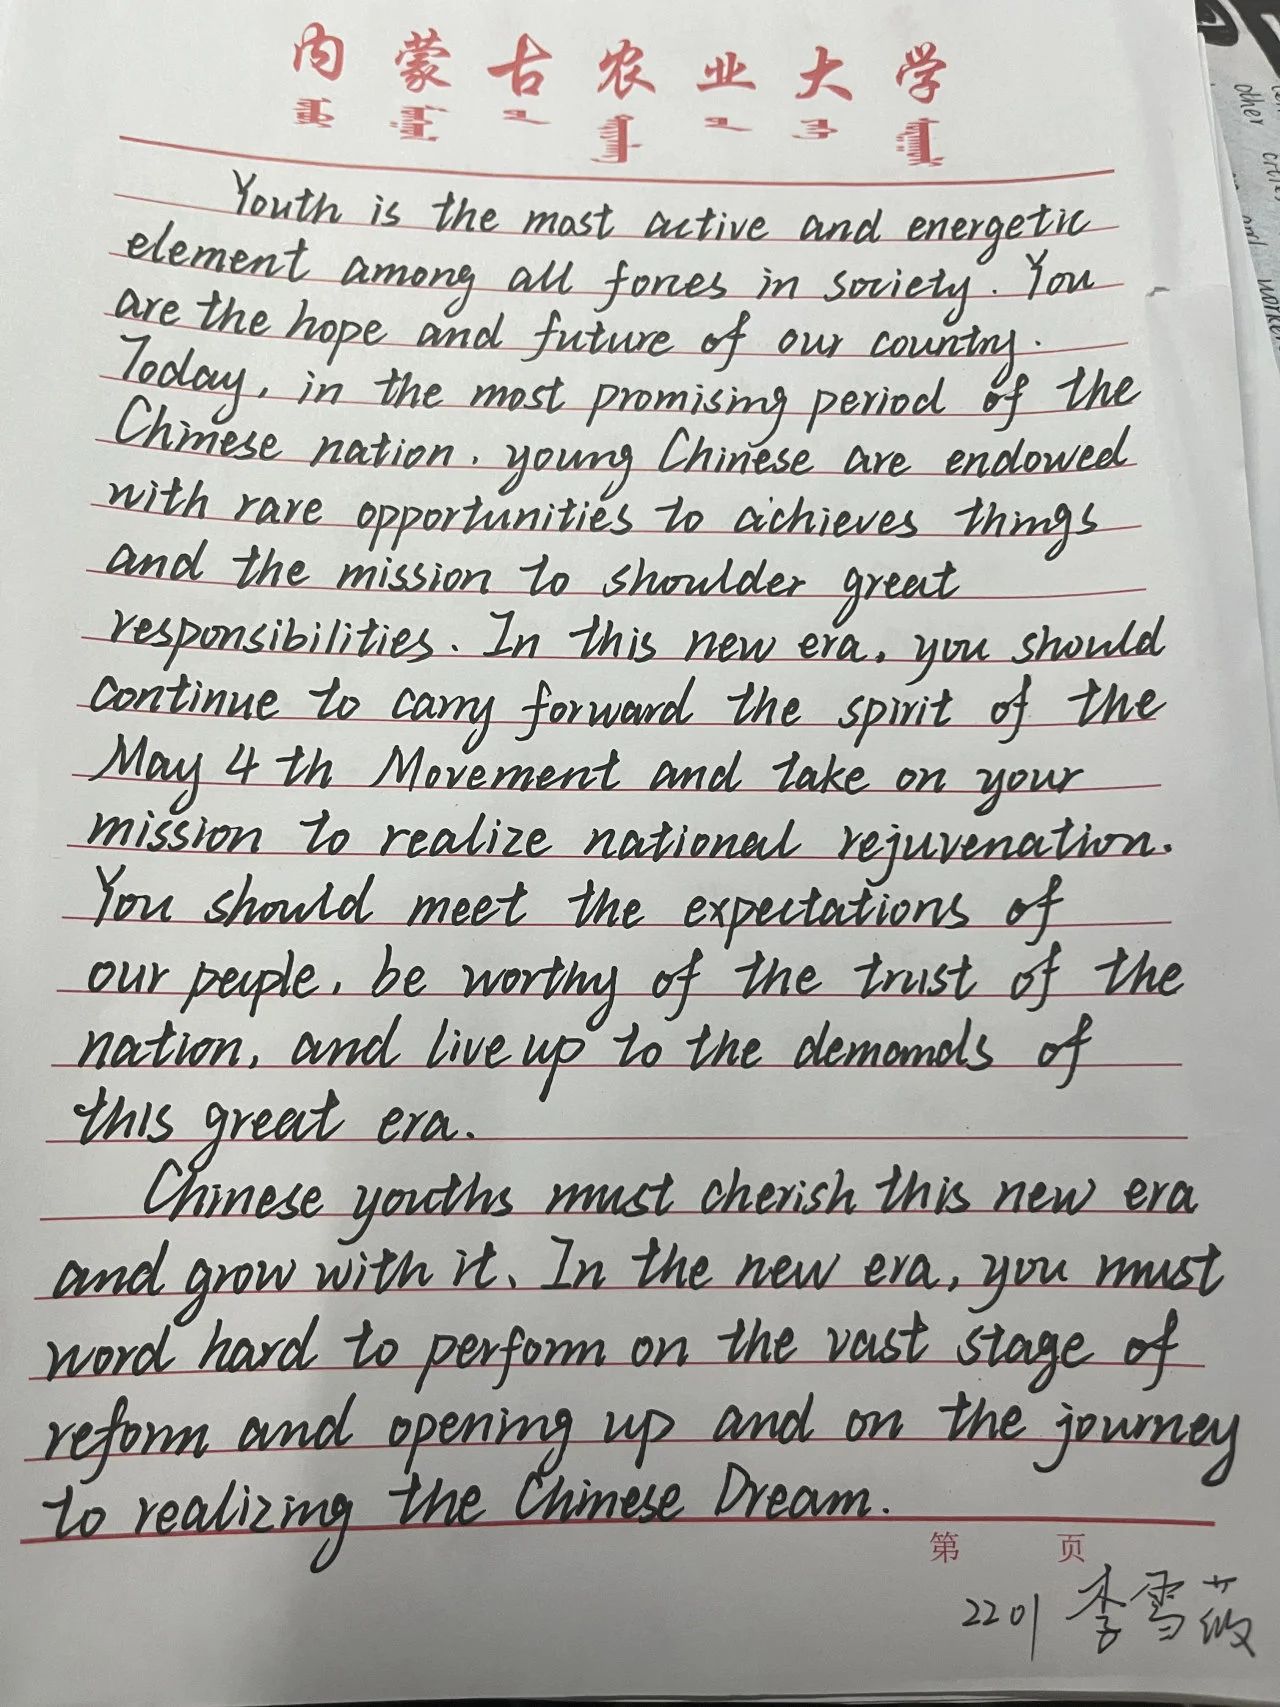 内蒙古农业大学
Youth is the most active and energetic
element among all forces in society. You
are the hope and future of our country.
Today, in the most promising period of the
Chinese nation, young Chinese are endowed
with rare opportunities to achieves things
and the mission to shoulder great
responsibilities. In this new era, you should
continue to carry forward the spirit of the
May 4th Movement and take on your
mission to realize national rejuvenation.
You should meet the expectations of
our people, be worthy of the trust of the
nation, and live up to the demands of
this great era.
Chinese youths must cherish this new era
and grow with it. In the new era, you must
word hard to perform on the vast stage of
reform and opening up and on the journey
to realizing the Chinese Dream.
第 页
2201 李雪薇
other